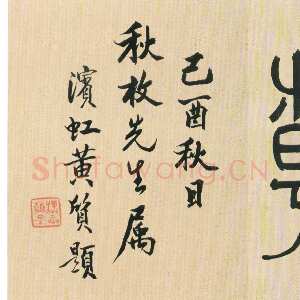 己酉秋日
秋枚先生属
濱虹黄質題
Shufawang.CN